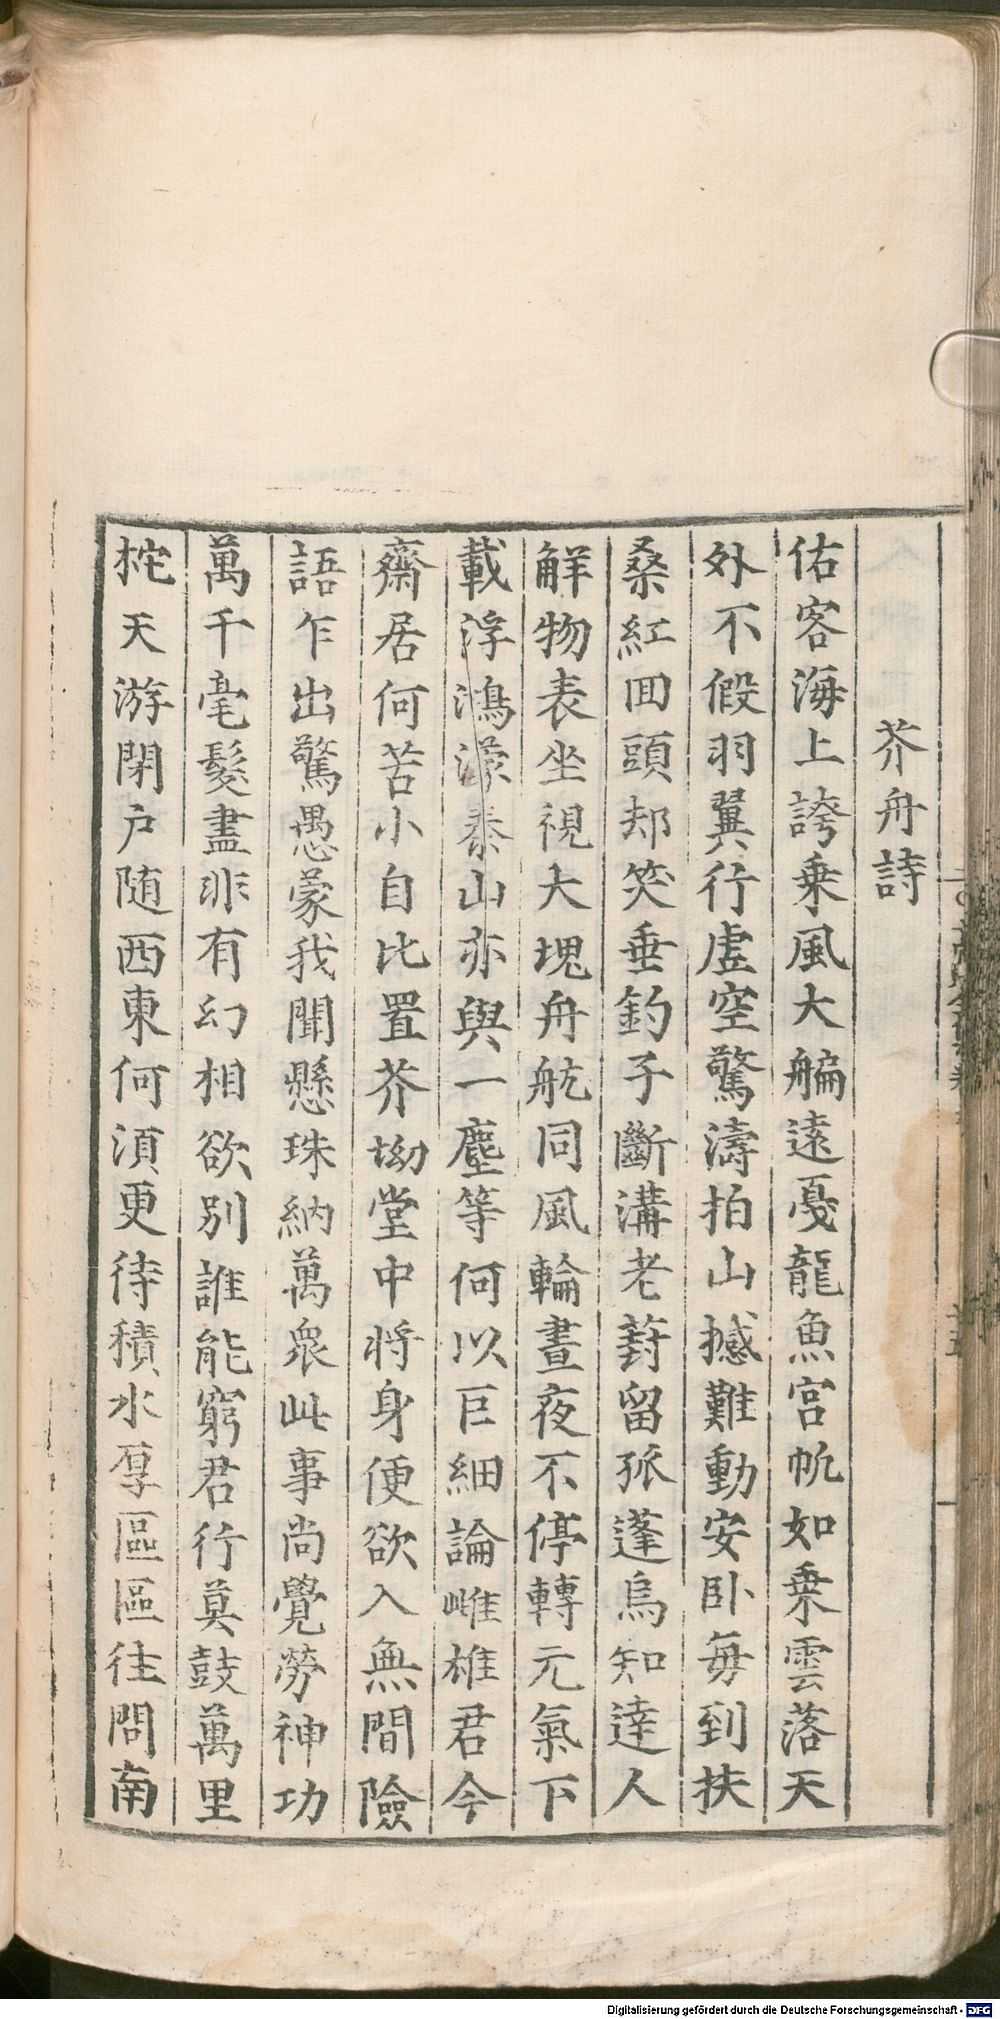 芥舟詩
佑客海上誇乗風大艑遠戞龍魚宫帆如乗雲落天
外不假羽翼行虚空驚濤拍山撼難動安卧毎到扶
桑紅囬頭却笑垂釣子斷溝老葑留孤蓬烏知達人
觧物表坐視大塊舟航同風輪晝夜不停轉元氣下
載浮鴻濛泰山亦與一塵等何以巨細論雌雄君今
齋居何苦小自比置芥坳堂中将身便欲入無間險
語乍出驚愚蒙我聞懸珠納萬衆此事尚覺勞神功
萬千毫髮盡非有幻相欲别誰能窮君行莫鼓萬里
柁天游閉户随西東何湏更待積水厚區區往問南
Digitalisierung gefördert durch die Deutsche Forschungsgemeinschaft - DFG